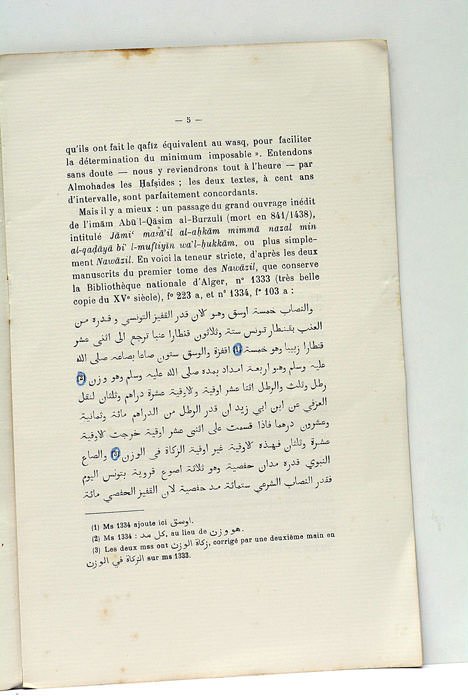 — 5 —
qu'ils ont fait le qafīz équivalent au wasq, pour faciliter
la détermination du minimum imposable ». Entendons
sans doute — nous y reviendrons tout à l'heure — par
Almohades les Ḥafṣides ; les deux textes, à cent ans
d'intervalle, sont parfaitement concordants.
Mais il y a mieux : un passage du grand ouvrage inédit
de l'imām Abū'l-Qāsim al-Burzulī (mort en 841/1438),
intitulé Jāmi' masā'il al-aḥkām mimmā nazal min
al-qaḍāyā bi'l-muftiyīn wa'l-ḥukkām, ou plus simple-
ment Nawāzil. En voici la teneur stricte, d'après les deux
manuscrits du premier tome des Nawāzil, que conserve
la Bibliothèque nationale d'Alger, n° 1333 (très belle
copie du XVe siècle), f° 223 a, et n° 1334, f° 103 a :
والنصاب خمسة اوسق وهو كلان قدر القفيز التونسي وقدره من
العنب بقنطار تونس ستة وثلاثون قنطارا عنبا ترجع الى اثني عشر
قنطارا زبيبا وهو خمسة (1) اقفزة والوسق ستون صاعا بصاعه صلى الله
عليه وسلم وهو اربعة امداد بمده صلى الله عليه وسلم وهو وزن (2)
رطل وثلث والرطل اثنا عشر اوقية والاوقية عشرة دراهم وثلثان لنقل
العزفي عن ابن ابي زيد ان قدر الرطل من الدراهم مائة وثمانية
وعشرون درهما فاذا قسمت على اثنى عشر اوقية خرجت الاوقية
عشرة وثلثان فهذه الاوقية غير اوقية الزكاة في الوزن (3) والصاع
النبوي قدره مدان حفصية وهو ثلاثة اصوع قروية بتونس اليوم
فقدر النصاب الشرعي ستمائة مد حفصية لان القفيز الحفصي مائة
(1) Ms 1334 ajoute ici اوسق.
(2) Ms 1334 : كل مد, au lieu de هو وزن.
(3) Les deux mss ont زكاة الوزن, corrigé par une deuxième main en
الزكاة في الوزن sur ms 1333.